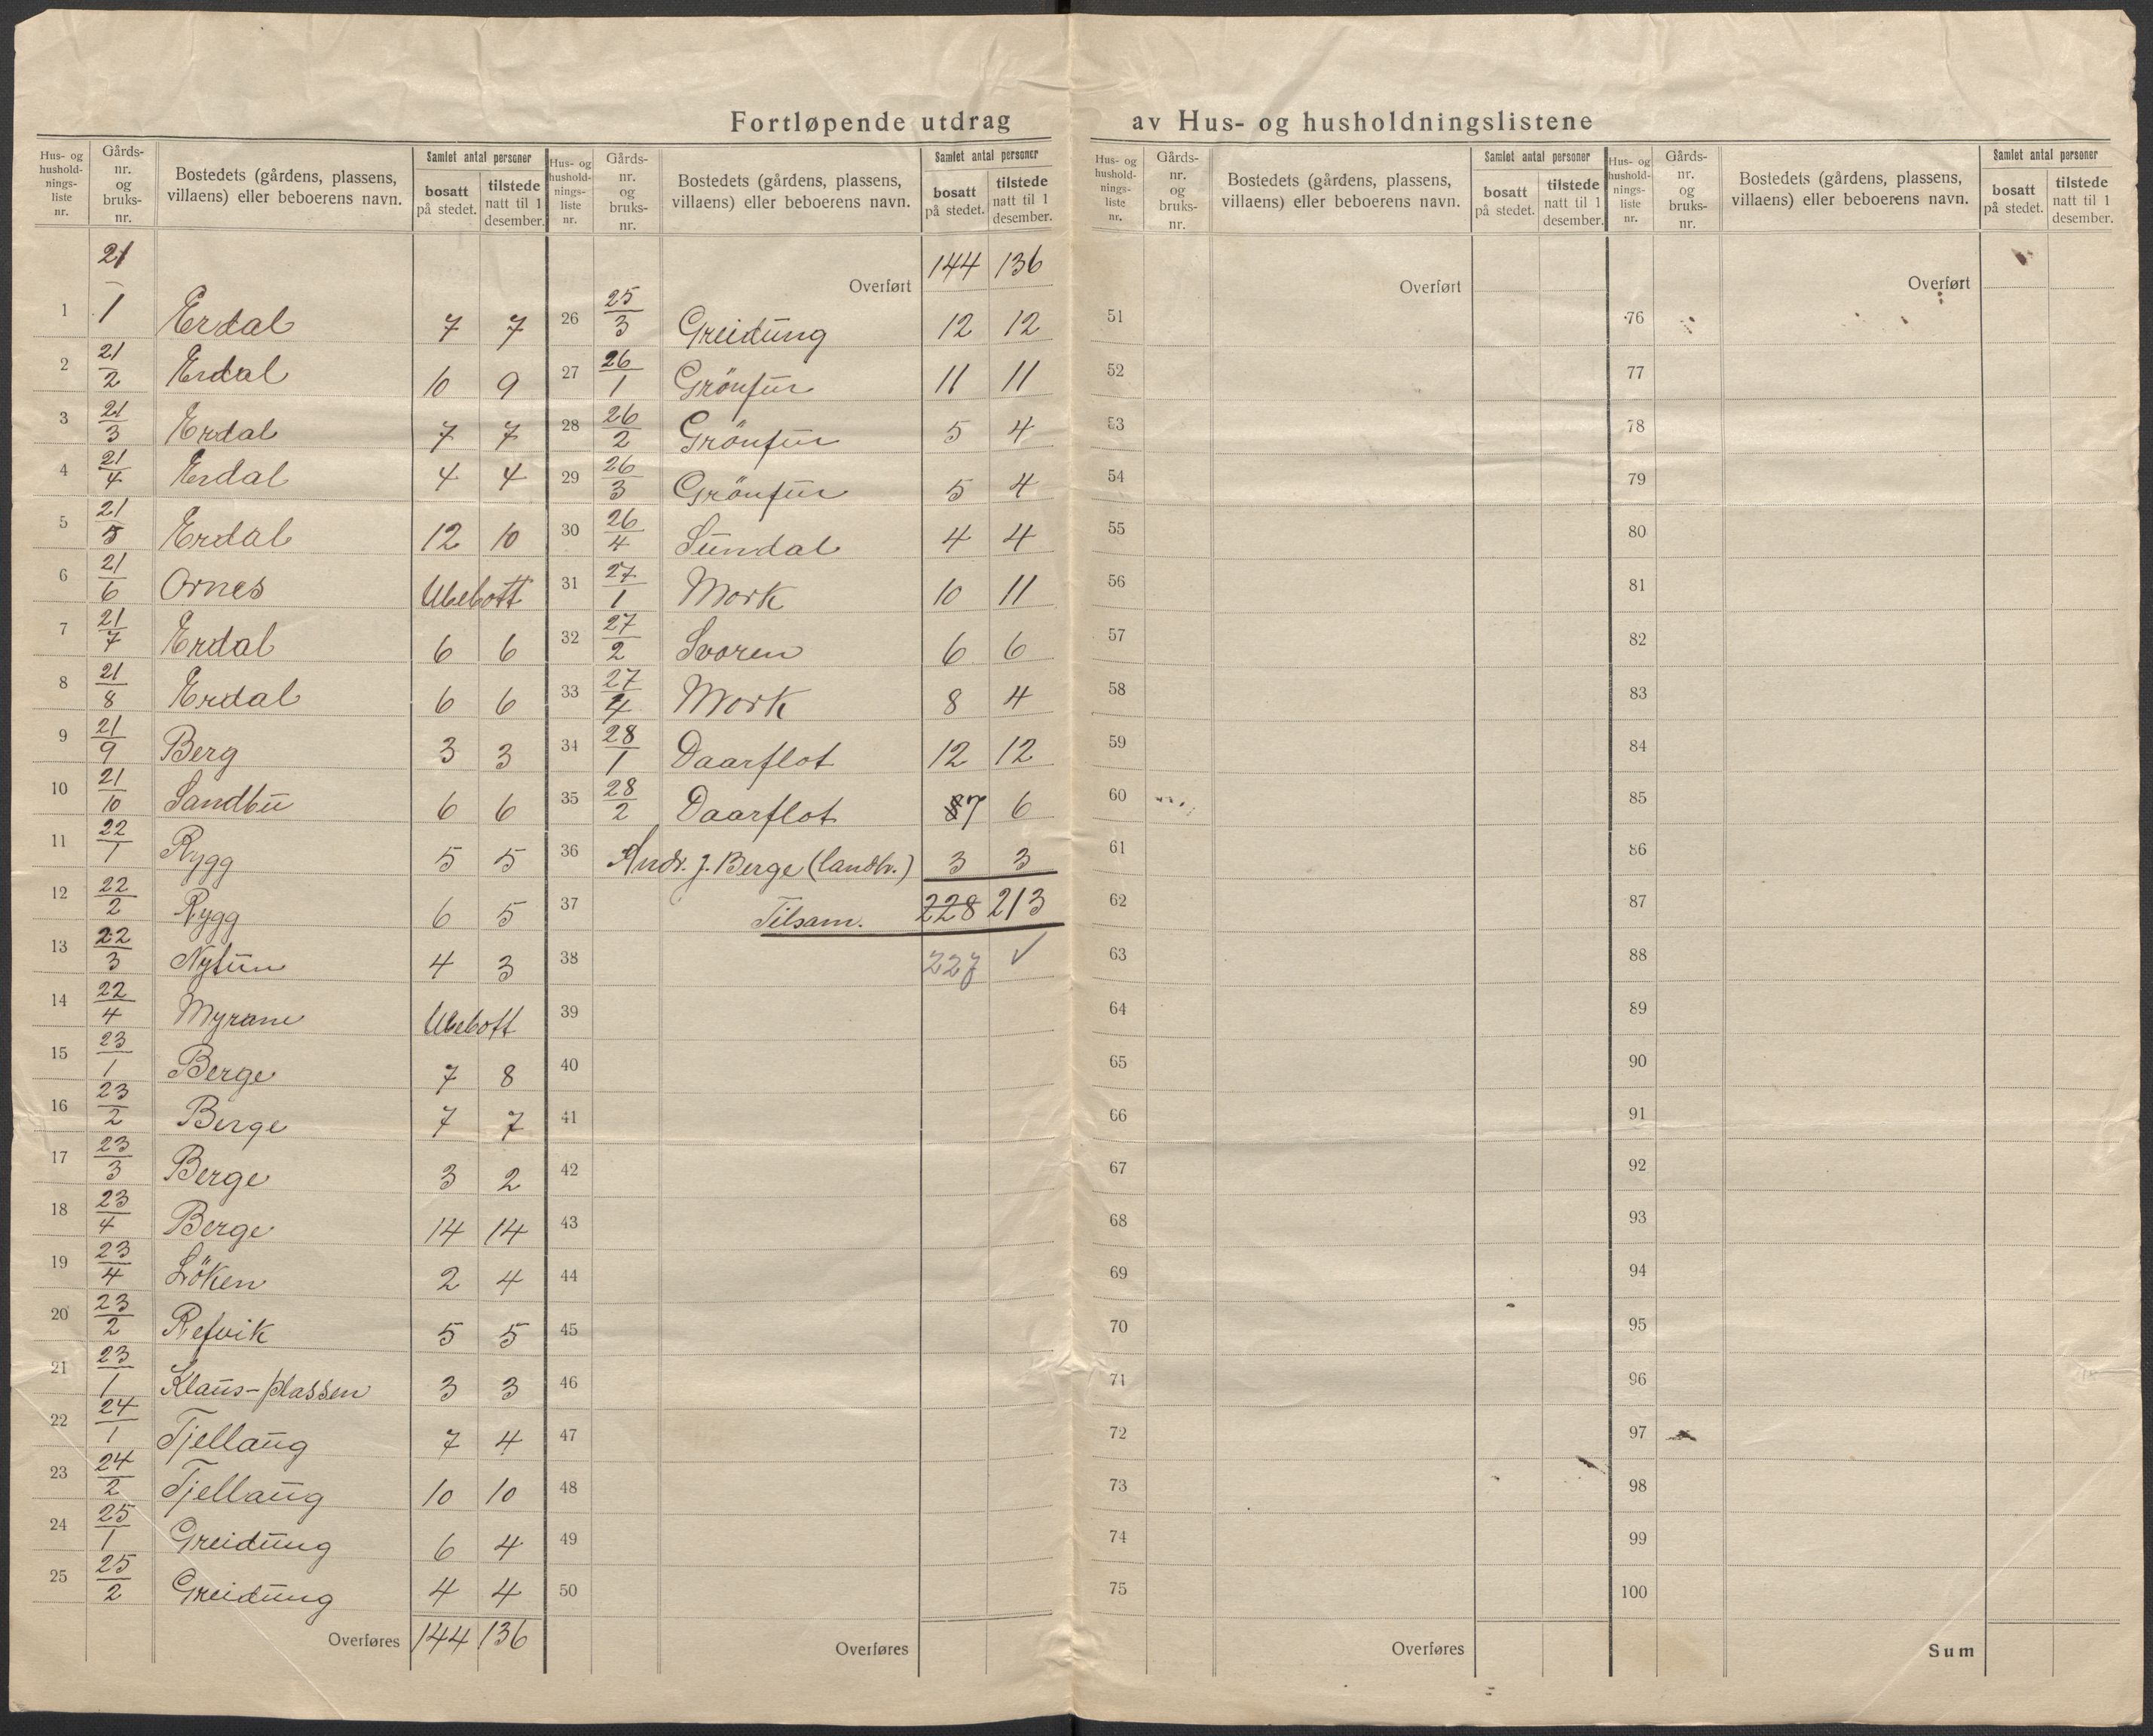 Fortløpende utdrag av Hus- og husholdningslistene
Hus- og hushold- nings- liste nr. | Gårds- nr. og bruks- nr. | Bostedets (gårdens, plassens, villaens) eller beboerens navn. | Samlet antal personer | bosatt på stedet. | tilstede natt til 1 desember.
1 21/1 Erdal 7 7
2 21/2 Erdal 10 9
3 21/3 Erdal 7 7
4 21/4 Erdal 4 4
5 21/5 Erdal 12 10
6 21/6 Ornes Ubebott
7 21/7 Erdal 6 6
8 21/8 Erdal 6 6
9 21/9 Berg 3 3
10 21/10 Sandbu 6 6
11 22/1 Rygg 5 5
12 22/2 Rygg 6 5
13 22/3 Nytun 4 3
14 22/4 Myrane Ubebott
15 23/1 Berge 7 8
16 23/2 Berge 7 7
17 23/3 Berge 3 2
18 23/4 Berge 14 14
19 23/4 Löken 2 4
20 23/2 Refvik 5 5
21 23/1 Klaus-plassen 3 3
22 24/1 Tjellaug 7 4
23 24/2 Tjellaug 10 10
24 25/1 Greidung 6 4
25 25/2 Greidung 4 4
Overføres 144 136
Hus- og hushold- nings- liste nr. | Gårds- nr. og bruks- nr. | Bostedets (gårdens, plassens, villaens) eller beboerens navn. | Samlet antal personer | bosatt på stedet. | tilstede natt til 1 desember.
Overført 144 136
26 25/3 Greidung 12 12
27 26/1 Grönfur 11 11
28 26/2 Grönfur 5 4
29 26/3 Grönfur 5 4
30 26/4 Sundal 4 4
31 27/1 Mork 10 11
32 27/2 Svoren 6 6
33 27/4 Mork 8 4
34 28/1 Daarflot 12 12
35 28/2 Daarflot 87 6
36 Andr. J. Berge (landh.) 3 3
37 Tilsam. 228 213
38 227 ✓
39
40
41
42
43
44
45
46
47
48
49
50
Overføres
Hus- og hushold- nings- liste nr. | Gårds- nr. og bruks- nr. | Bostedets (gårdens, plassens, villaens) eller beboerens navn. | Samlet antal personer | bosatt på stedet. | tilstede natt til 1 desember.
Overført
51
52
53
54
55
56
57
58
59
60
61
62
63
64
65
66
67
68
69
70
71
72
73
74
75
Overføres
Hus- og hushold- nings- liste nr. | Gårds- nr. og bruks- nr. | Bostedets (gårdens, plassens, villaens) eller beboerens navn. | Samlet antal personer | bosatt på stedet. | tilstede natt til 1 desember.
Overført
76
77
78
79
80
81
82
83
84
85
86
87
88
89
90
91
92
93
94
95
96
97
98
99
100
Sum